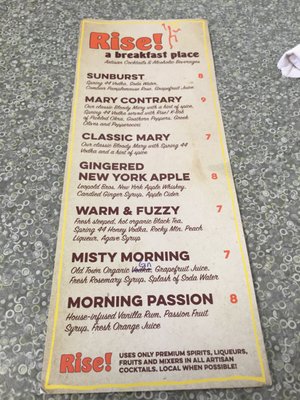 Rise!
a breakfast place
Artisan Cocktails & Alcoholic Beverages
SUNBURST 8
Spring 44 Vodka, Soda Water,
Combier Pamplemousse Rose, Grapefruit Juice
MARY CONTRARY 9
Our classic Bloody Mary with a hint of spice,
Spring 44 Vodka served with Rise! A-Rod
of Pickled Okra, Southern Peppers, Greek
Olives and Pepperoncini
CLASSIC MARY 7
Our classic Bloody Mary with Spring 44
Vodka and a hint of spice
GINGERED
NEW YORK APPLE 8
Leopold Bros. New York Apple Whiskey,
Candied Ginger Syrup, Apple Cider
WARM & FUZZY 7
Fresh steeped, hot organic Black Tea,
Spring 44 Honey Vodka, Rocky Mtn. Peach
Liqueur, Agave Syrup
MISTY MORNING 7
Gin
Old Town Organic Vodka, Grapefruit Juice,
Fresh Rosemary Syrup, Splash of Soda Water
MORNING PASSION 8
House-infused Vanilla Rum, Passion Fruit
Syrup, Fresh Orange Juice
Rise! USES ONLY PREMIUM SPIRITS, LIQUEURS,
FRUITS AND MIXERS IN ALL ARTISAN
COCKTAILS. LOCAL WHEN POSSIBLE!